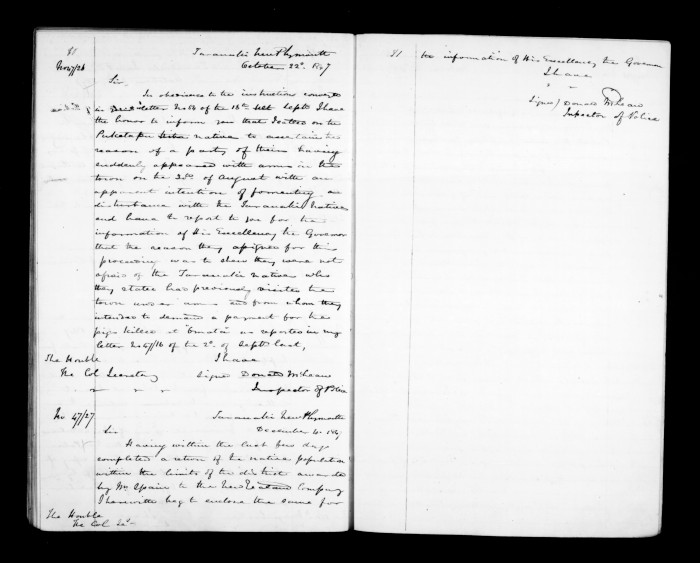 81
No 47/26
Taranaki New Plymouth
October 22d. 1847
Sir,
In obedience to the instructions conveyed
in letter No 54 of the 16th Septr I have
the honor to inform you that I called on the
Puketapu natives to ascertain the
reason of a party of theirs having
suddenly appeared with arms in the
town on the 28th of August with an
apparent intention of fomenting a
disturbance with the Taranaki Natives
and have to report to you for the
information of His Excellency the Governor
that the reason they assigned for this
proceeding was to shew they were not
afraid of the Taranaki natives who
they stated had previously visited the
town under arms and from whom they
intended to demand a payment for the
pigs killed at Omata as reported in my
letter No 47/16 of the 2d. of Septr last,
I have
The Honble
The Col Secretary
Signed Donald McLean
Inspector of Police
No 47/27
Taranaki New Plymouth
December 4. 1847
Sir
Having within the last few days
completed a return of the native population
within the limits of the district awarded
by Mr Spain to the New Zealand Company
I herewith beg to enclose the same for
The Honble
The Col Sec
81
the information of His Excellency the Governor
I have
" "
Signed / Donald McLean
Inspector of Police